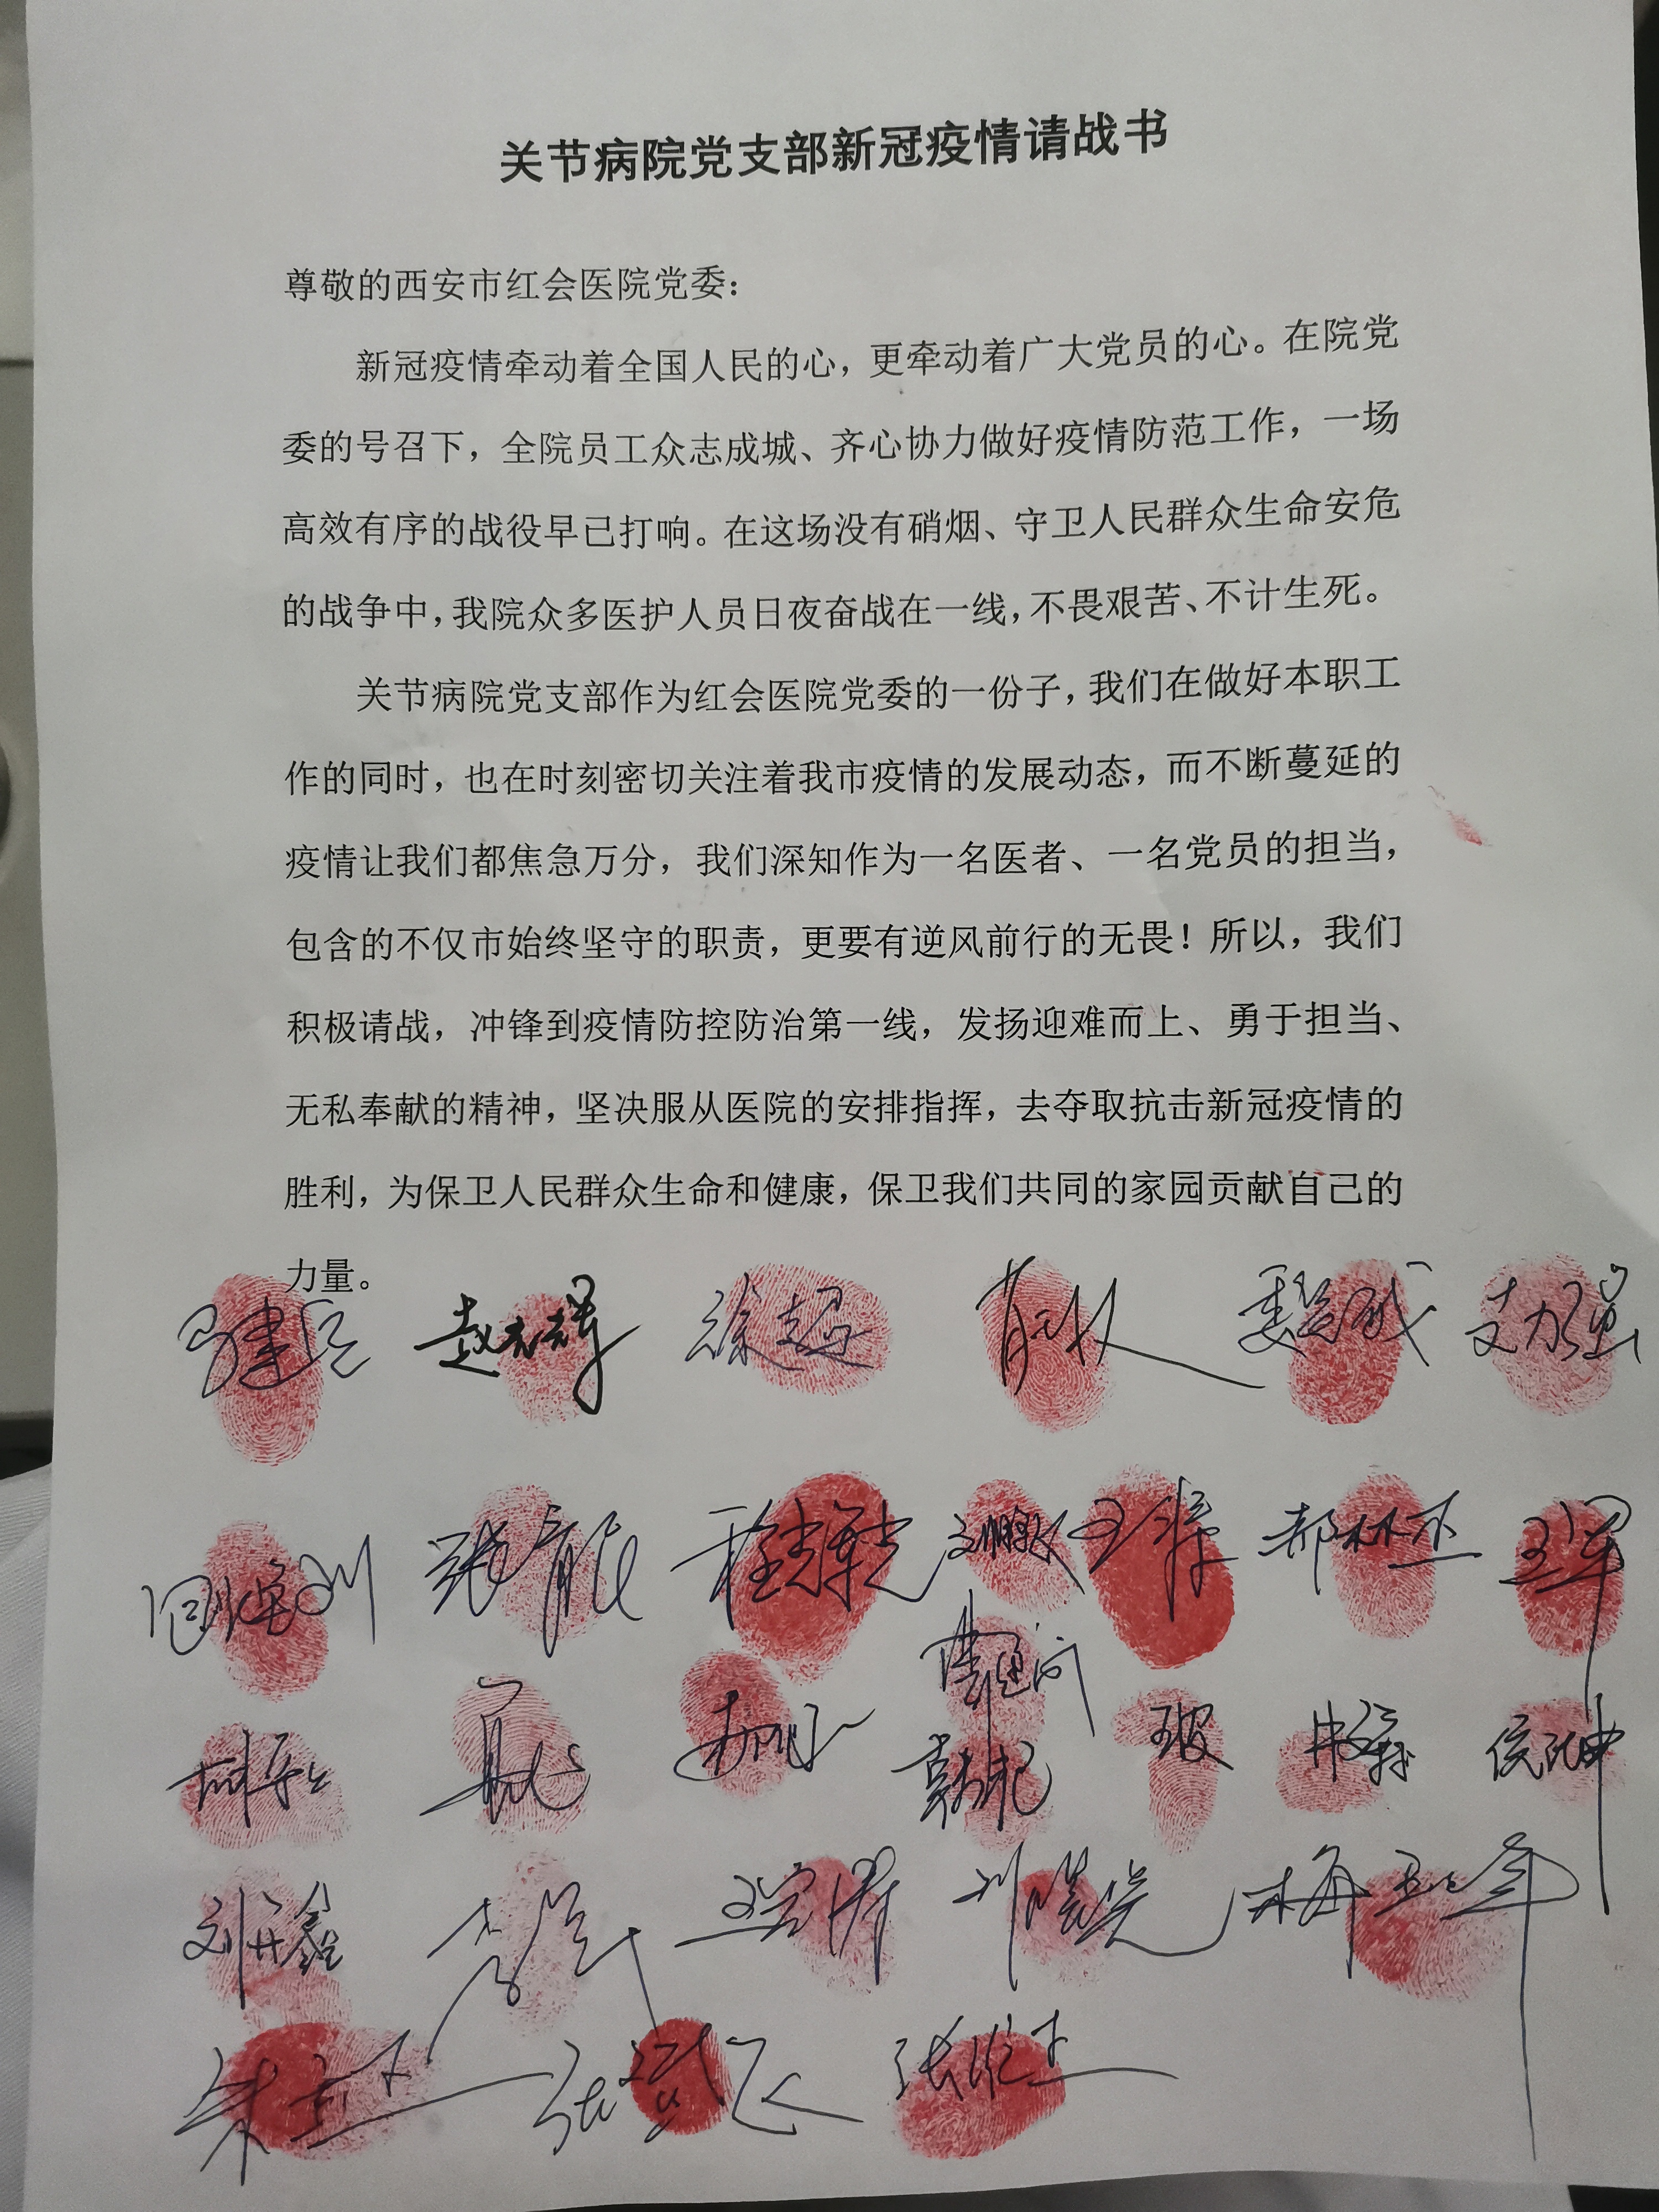 关节病院党支部新冠疫情请战书
尊敬的西安市红会医院党委：
新冠疫情牵动着全国人民的心，更牵动着广大党员的心。在院党
委的号召下，全院员工众志成城、齐心协力做好疫情防范工作，一场
高效有序的战役早已打响。在这场没有硝烟、守卫人民群众生命安危
的战争中，我院众多医护人员日夜奋战在一线，不畏艰苦、不计生死。
关节病院党支部作为红会医院党委的一份子，我们在做好本职工
作的同时，也在时刻密切关注着我市疫情的发展动态，而不断蔓延的
疫情让我们都焦急万分，我们深知作为一名医者、一名党员的担当，
包含的不仅市始终坚守的职责，更要有逆风前行的无畏！所以，我们
积极请战，冲锋到疫情防控防治第一线，发扬迎难而上、勇于担当、
无私奉献的精神，坚决服从医院的安排指挥，去夺取抗击新冠疫情的
胜利，为保卫人民群众生命和健康，保卫我们共同的家园贡献自己的
力量。
马建兵 赵志辉 徐超 支力强
张育民 郝林杰 王军
刘开鑫 李强 梅玉峰
朱立 张斌飞 张维杰